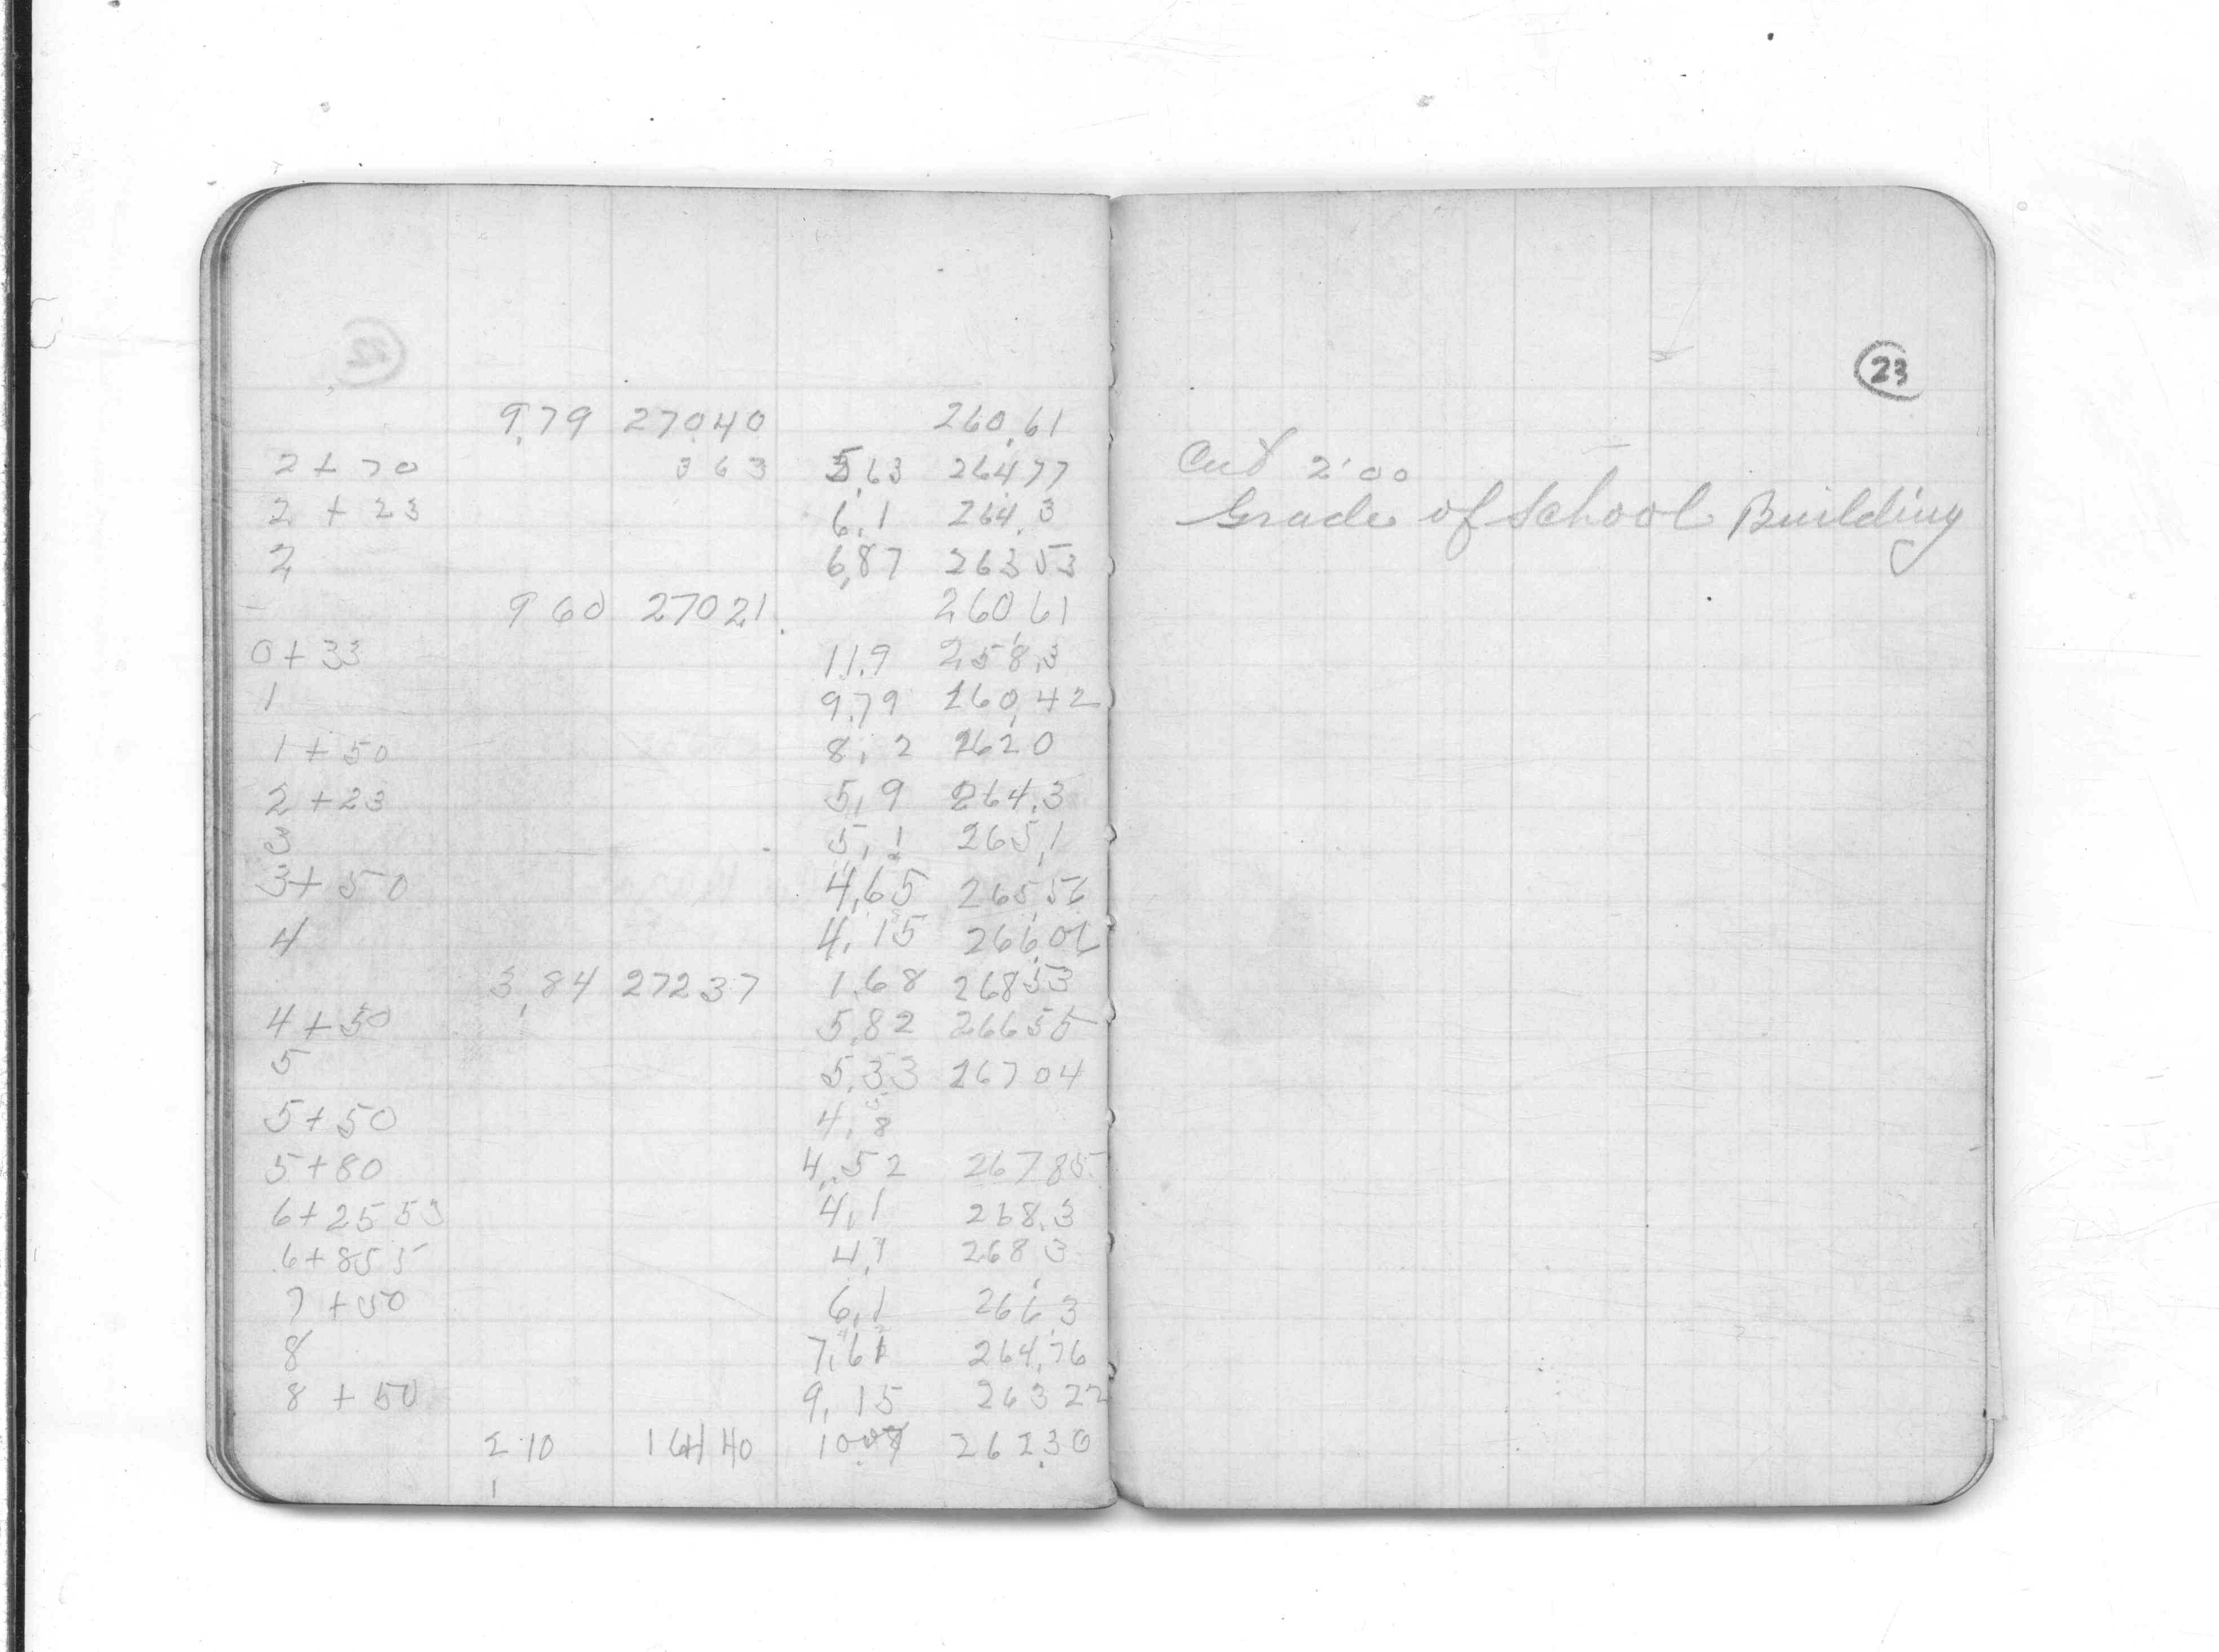 23
9.79 270.40 260.61
2+70 363 5.63 26477
2+23 6.1 264.3
2 6.87 26353
960 27021 26061
0+33 11.9 258.3
1 9.79 260.42
1+50 8.2 2620
2+23 5.9 264.3
3 5.1 265.1
3+50 4.65 265.56
4 4.15 266.06
3.84 27237 1.68 26853
4+50 5.82 26655
5 5.33 26704
5+50 4.8
5+80 4.52 26785
6+2553 4.1 268.3
6+855 4.1 268.3
7+50 6.1 266.3
8 7.61 264.76
8+50 9.15 26322
2.10 26230
Cut 2.00
Grade of School Building